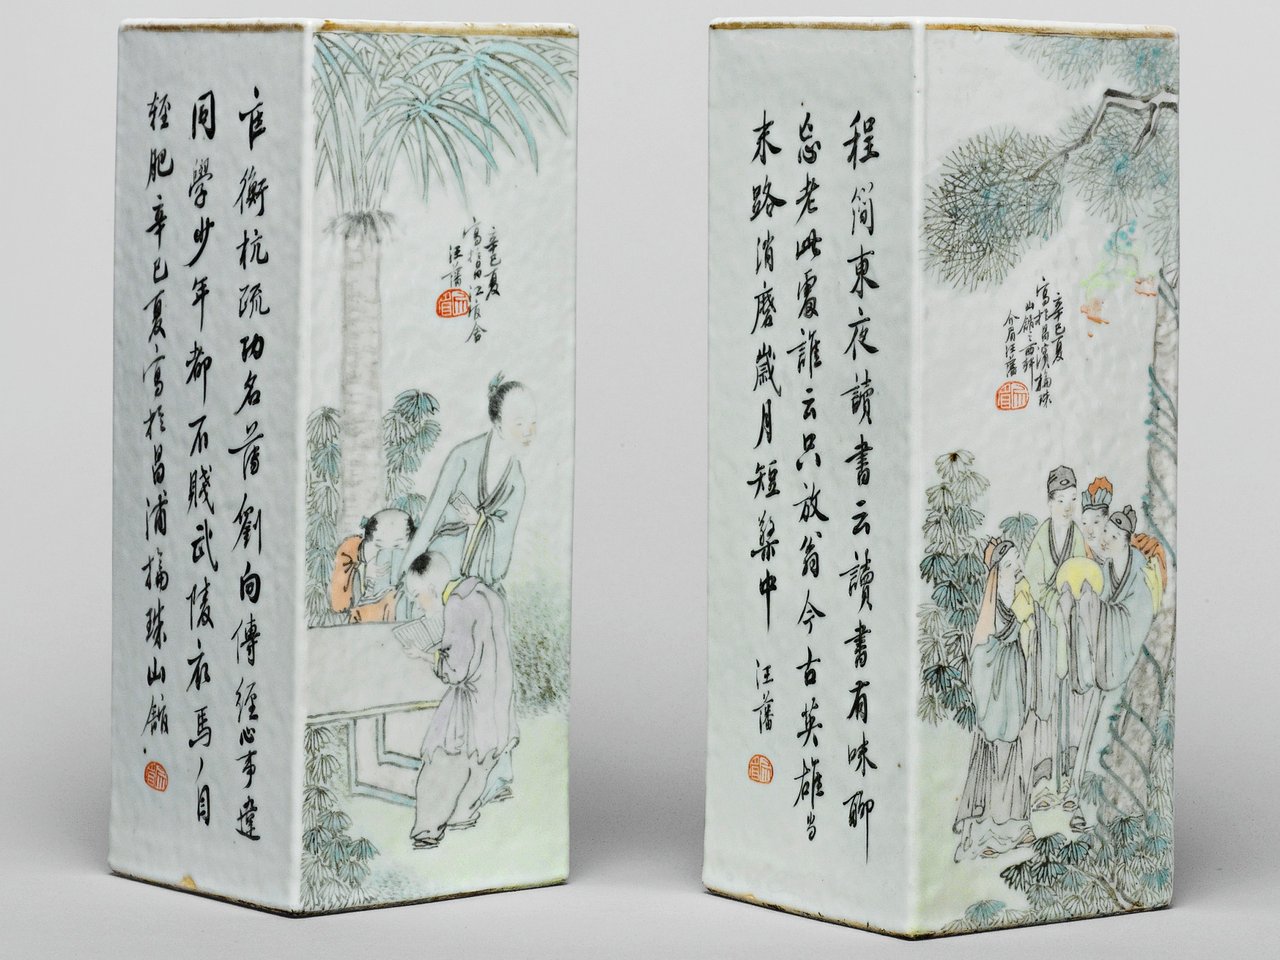 匡衡抗疏功名薄劉向傳經心事違
同學少年都不賤武陵衣馬〻自
輕肥辛巳夏寫於昌浦珠山館
辛巳夏
寫於昌江客舍
汪藩
程簡東夜讀書云讀書有味聊
忘老此處誰云只放翁今古英雄當
末路消磨歲月短檠中 汪藩
辛巳夏
寫於昌濱珠
山館之西軒
介眉汪藩